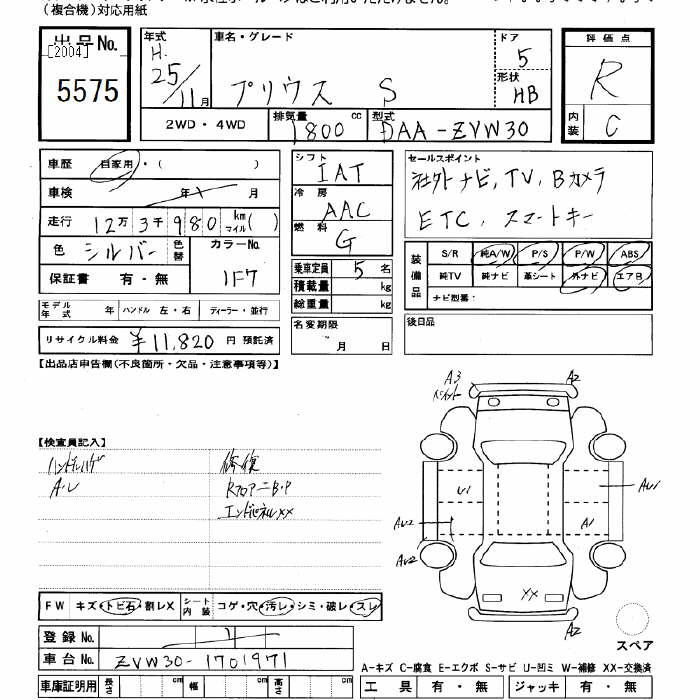 (複合機)対応用紙
出品No. [2004] 5575
年式 H. 25/11月
車名・グレード プリウス S
ドア 5
形状 HB
評価点 R
内装 C
2WD・4WD
排気量 1800 cc
型式 DAA-ZVW30
車歴 自家用・( )
車検 年 月
走行 12万3千980 km マイル( )
色 シルバー 色替 カラーNo. 1F7
保証書 有・無
モデル年式 年 ハンドル 左・右 ディーラー・並行
リサイクル料金 ¥11,820 円 預託済
シフト IAT
冷房 AAC
燃料 G
乗車定員 5名
積載量 kg
総重量 kg
名変期限 月 日
セールスポイント
社外ナビ, TV, Bカメラ
ETC, スマートキー
装備品 S/R 純A/W P/S P/W ABS
純TV 純ナビ 革シート 外ナビ エアB
ナビ型番:
後日品
【出品店申告欄(不良箇所・欠品・注意事項等)】
【検査員記入】
ハンドルハゲ 修復
A・U Rフロアー二B・P
エンドパネルXX
A3 ペイント A2
U1 AU1
AU2 A1
AU2
XX
A2
スペア
FW キズ・トビ石・割レX シート内装 コゲ・穴・汚レ・シミ・破レ・スレ
登録No.
車台No. ZVW30-1701971
車庫証明用 長さ cm 幅 cm 高さ cm
A-キズ C-腐食 E-エクボ S-サビ U-凹ミ W-補修 XX-交換済
工具 有・無 ジャッキ 有・無